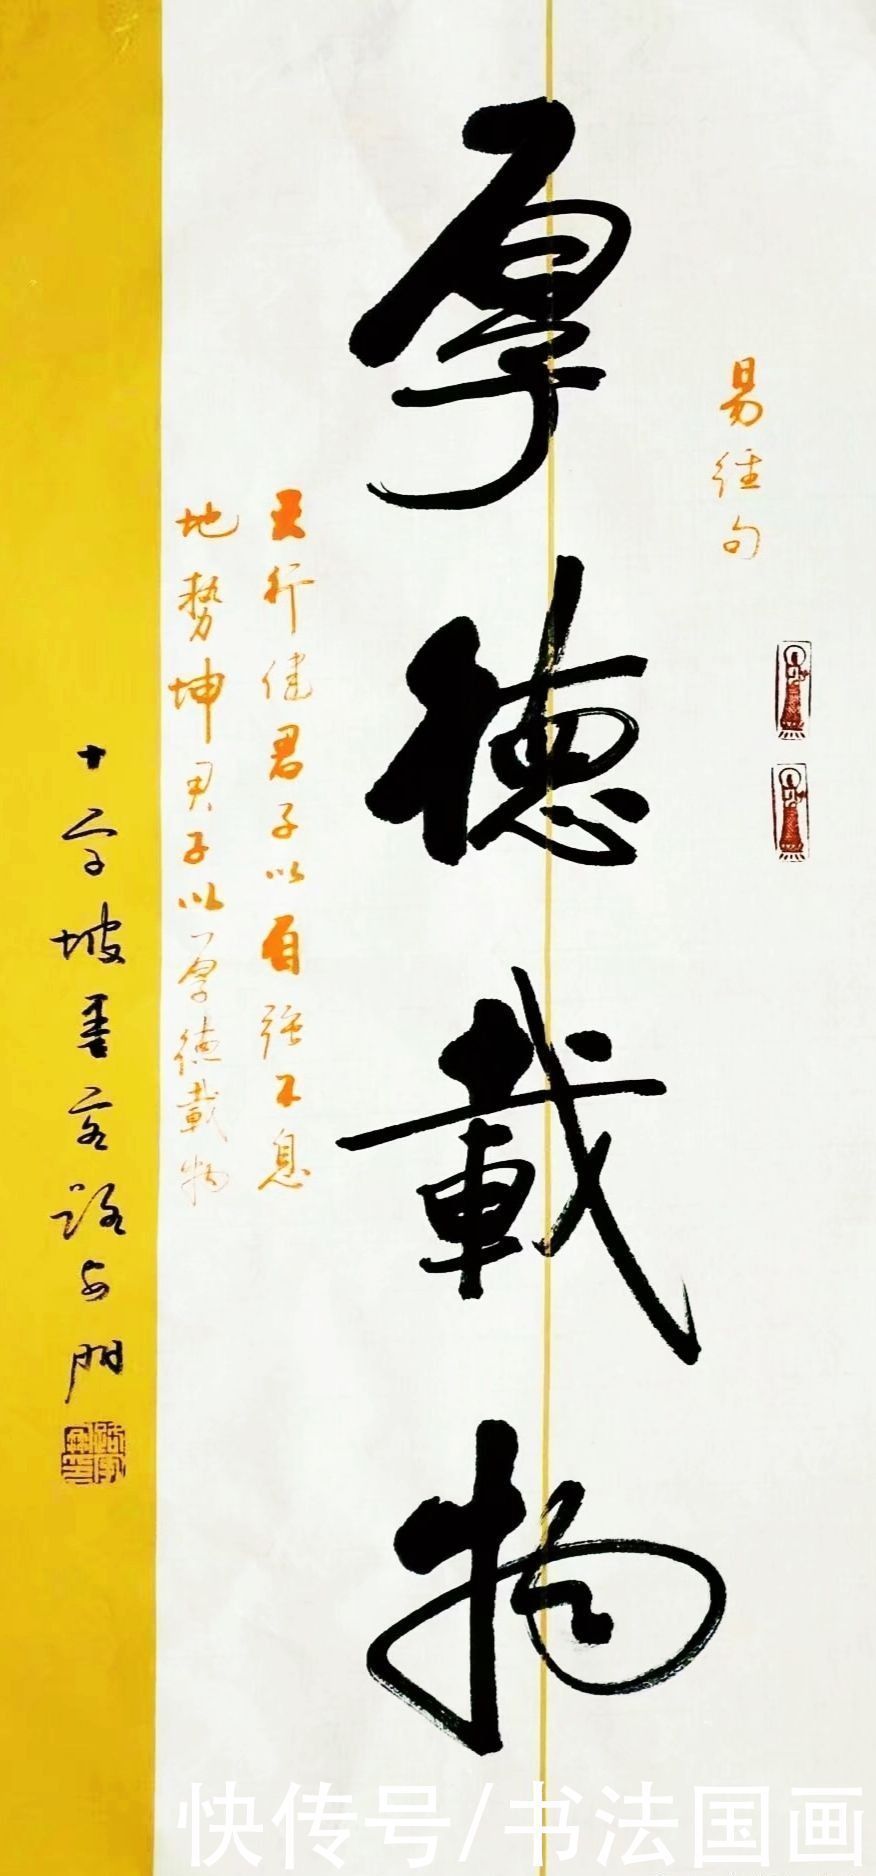 易经句
厚德載物
天行健君子以自强不息
地勢坤君子以厚德載物
十字坡客路門
快传号/书法国画